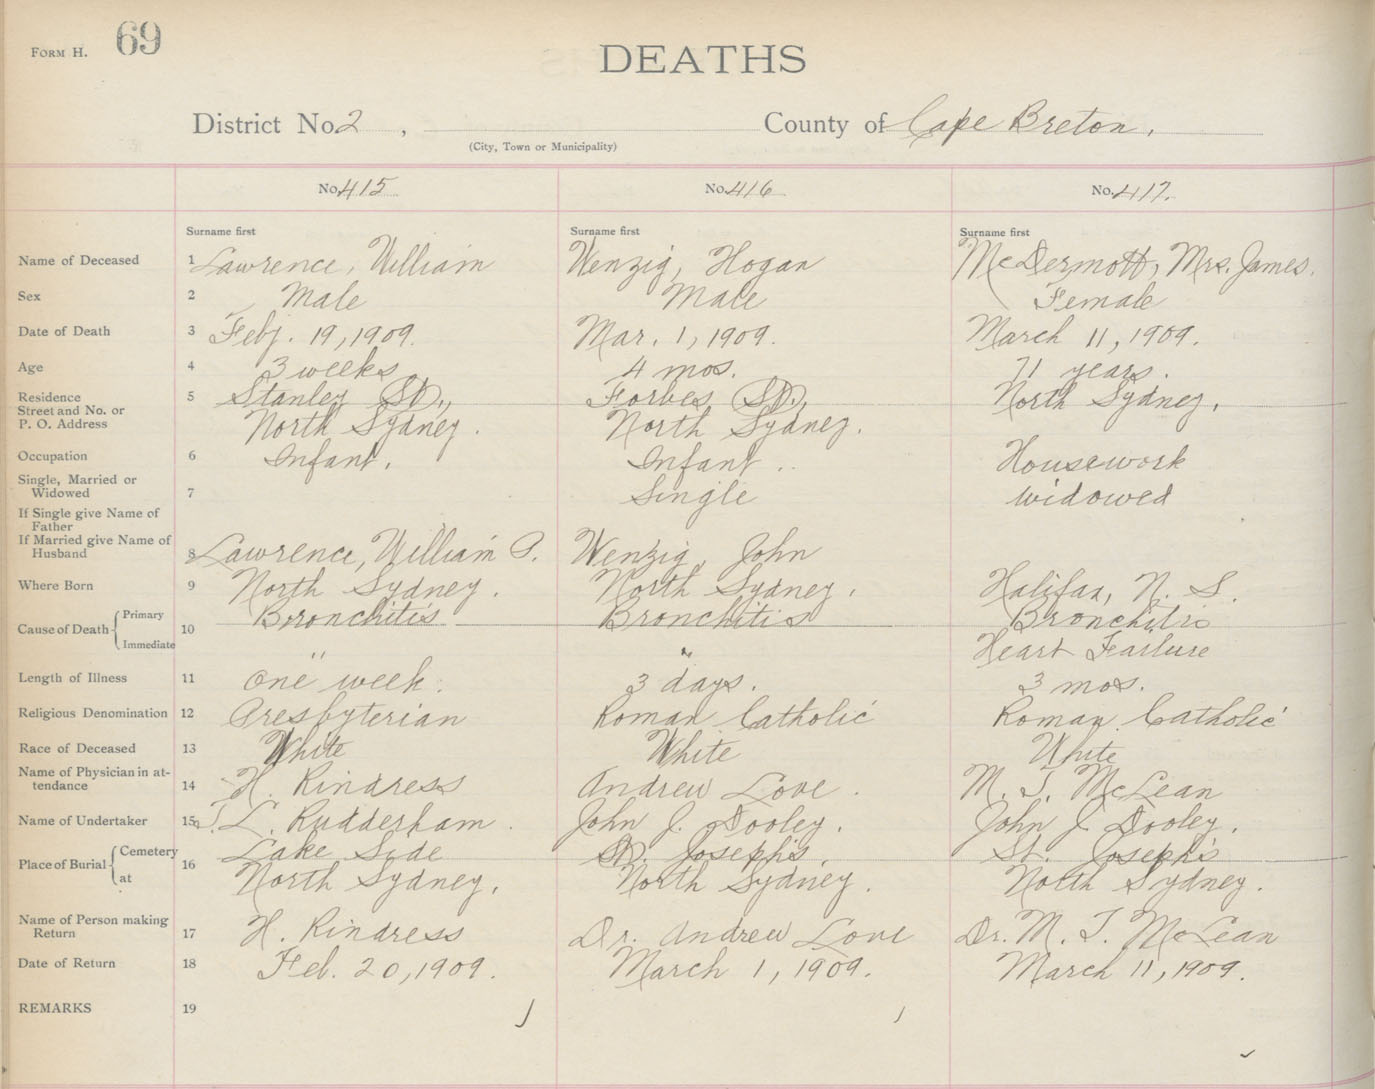 FORM H. 69
DEATHS
District No. 2 , County of Cape Breton.
(City, Town or Municipality)
No. 415 No. 416 No. 417.
Surname first Surname first Surname first
Name of Deceased 1 Lawrence, William Wenzig, Hogan McDermott, Mrs. James.
Sex 2 Male Male Female
Date of Death 3 Feby. 19, 1909. Mar. 1, 1909. March 11, 1909.
Age 4 3 weeks 4 mos. 71 years.
Residence 5 Stanley St., Forbes St., North Sydney.
Street and No. or
P. O. Address North Sydney. North Sydney.
Occupation 6 Infant. Infant. Housework
Single, Married or
Widowed 7 Single Widowed
If Single give Name of
Father
If Married give Name of
Husband 8 Lawrence, William P. Wenzig, John
Where Born 9 North Sydney. North Sydney. Halifax, N. S.
Cause of Death Primary 10 Bronchitis Bronchitis Bronchitis
Immediate " " Heart Failure
Length of Illness 11 One week. 3 days. 3 mos.
Religious Denomination 12 Presbyterian Roman Catholic Roman Catholic
Race of Deceased 13 White White White
Name of Physician in at-
tendance 14 H. Rindress Andrew Love. M. T. McLean
Name of Undertaker 15 L. Rudderham. John J. Dooley. John J. Dooley.
Place of Burial Cemetery 16 Lake Side St. Joseph's, St. Joseph's
at North Sydney. North Sydney. North Sydney.
Name of Person making
Return 17 H. Rindress Dr. Andrew Love Dr. M. T. McLean
Date of Return 18 Feb. 20, 1909. March 1, 1909. March 11, 1909.
REMARKS 19